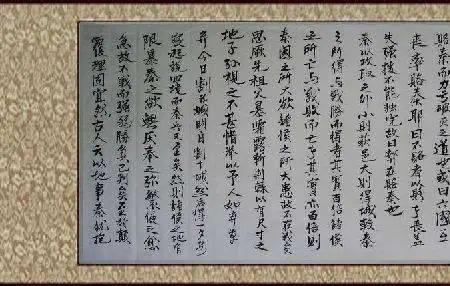 賂秦而力亏破灭之道也或曰六國互
丧率賂秦耶曰不賂者以賂者丧盖
失强援不能独完故曰弊在賂秦也
秦以攻取之外小則获邑大則得城較秦
之所得与戰勝而得者其實百倍諸侯
之所亡与戰敗而亡者其實亦百倍則
秦國之所大欲諸侯之所大患故不在戰矣
思厥先祖父暴霜露斬荆棘以有尺寸之
地子孫視之不甚惜舉以予人如弃草
芥今日割五城明日割十城然后得一夕安
寢起視四境而秦兵又至矣然則諸侯之地有
限暴秦之欲無厌奉之弥繁侵之愈
急故不戰而强弱勝負已判矣至於颠
覆理固宜然古人云以地事秦犹抱